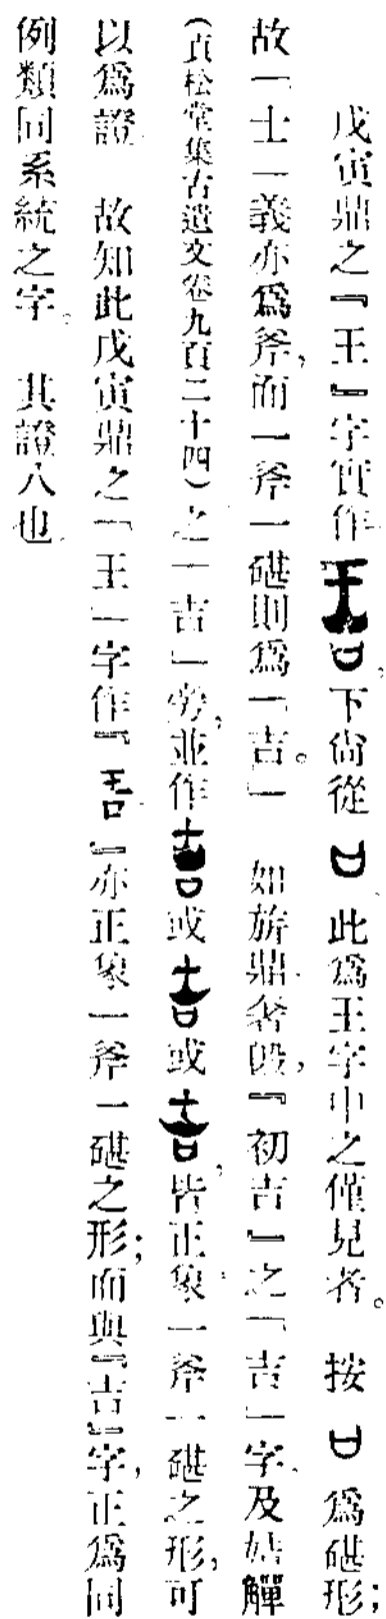 戊寅鼎之『王』字實作，下尚從 此爲王字中之僅見者。按 爲碪形；
故「士」義亦爲斧，而一斧一碪則爲「吉。」如旂鼎奢𣪘，『初吉』之「吉」字、及姞觶
（貞松堂集古遺文卷九頁二十四）之「吉」旁，並作 或 或 ，皆正象一斧一碪之形，可
以爲證 故知此戊寅鼎之「王」字作『 』亦正象一斧一碪之形；而與『吉』字，正爲同
例類同系統之字。其證八也